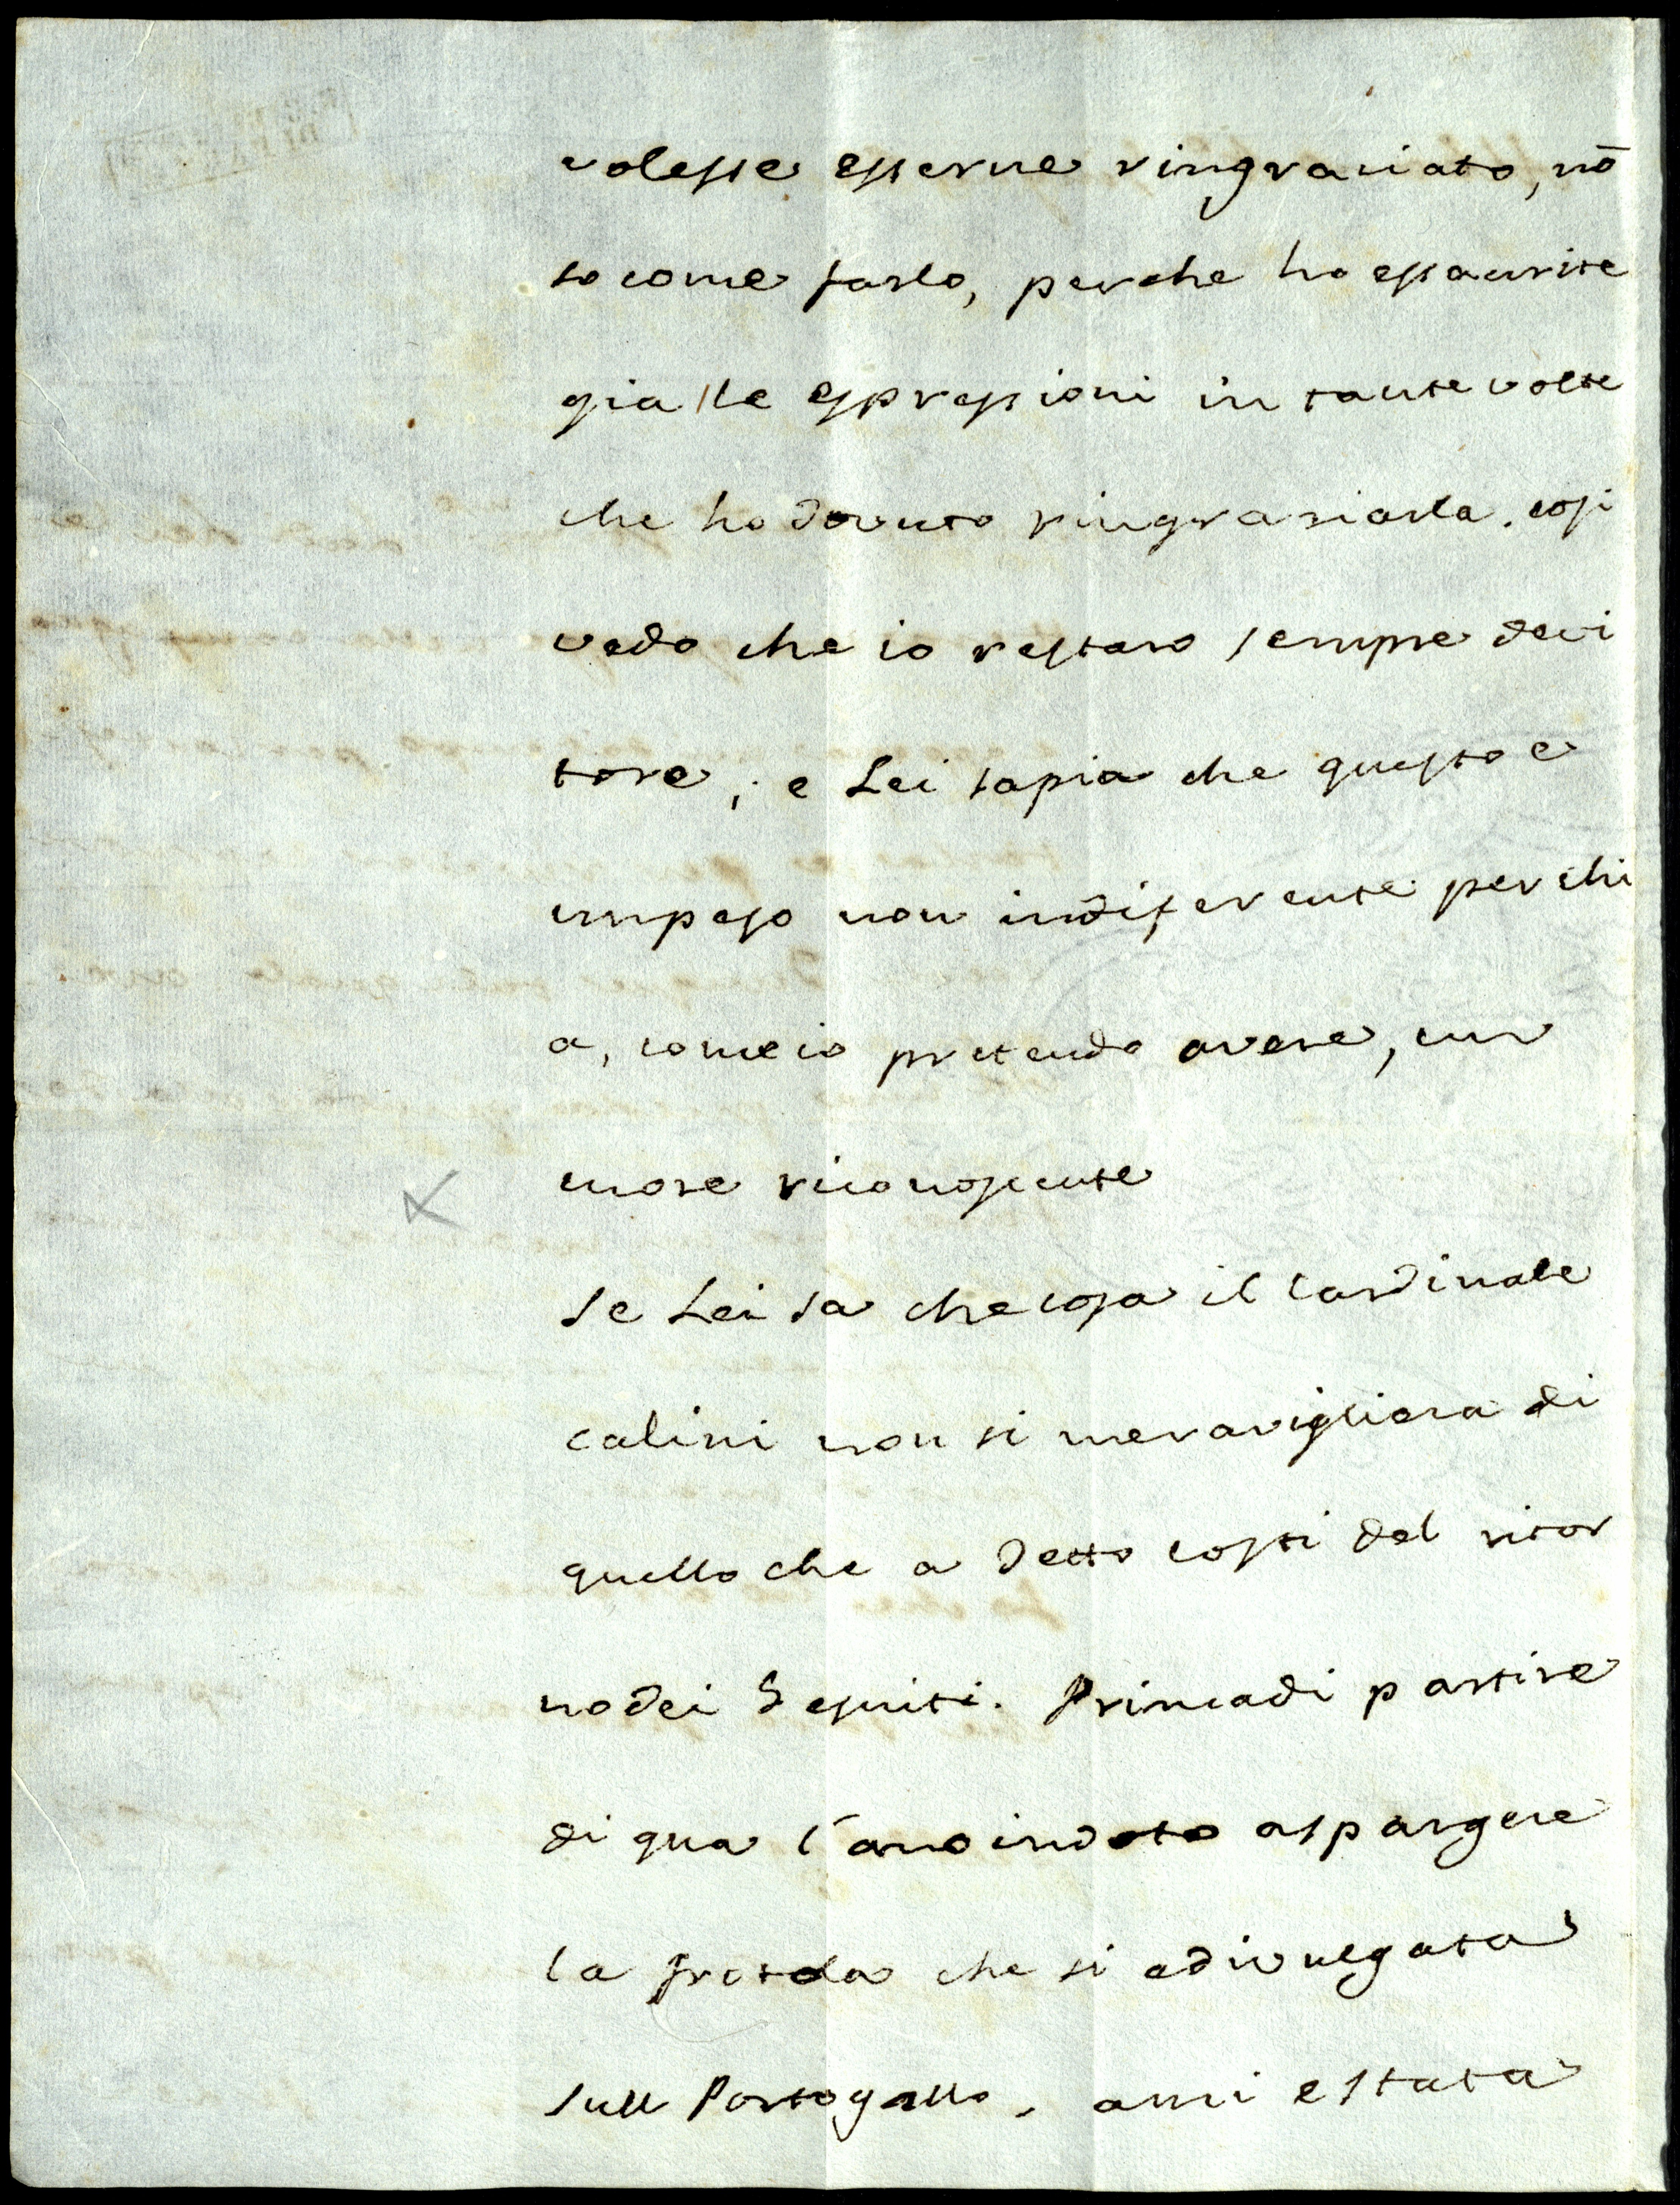 volesse esserne ringraciato, nō
so come farlo, perche ho essaurite
gia lle espressioni in tante volte
che ho dovuto ringrasiarla. cosi
vedo che io restaro sempre devi
tore, e Lei sapia che questo e
un peso non indiferente per chi
a, come io pretendo avere, un
more riconoscente
se Lei sa che cosa il Cardinale
calini non si meravigliera di
quello che a detto costi del ritor
no dei Gesuiti. Prima di partire
di qua l'ano indoto a spargere
la che si a divulgata
sull Portogallo, ansi e stata